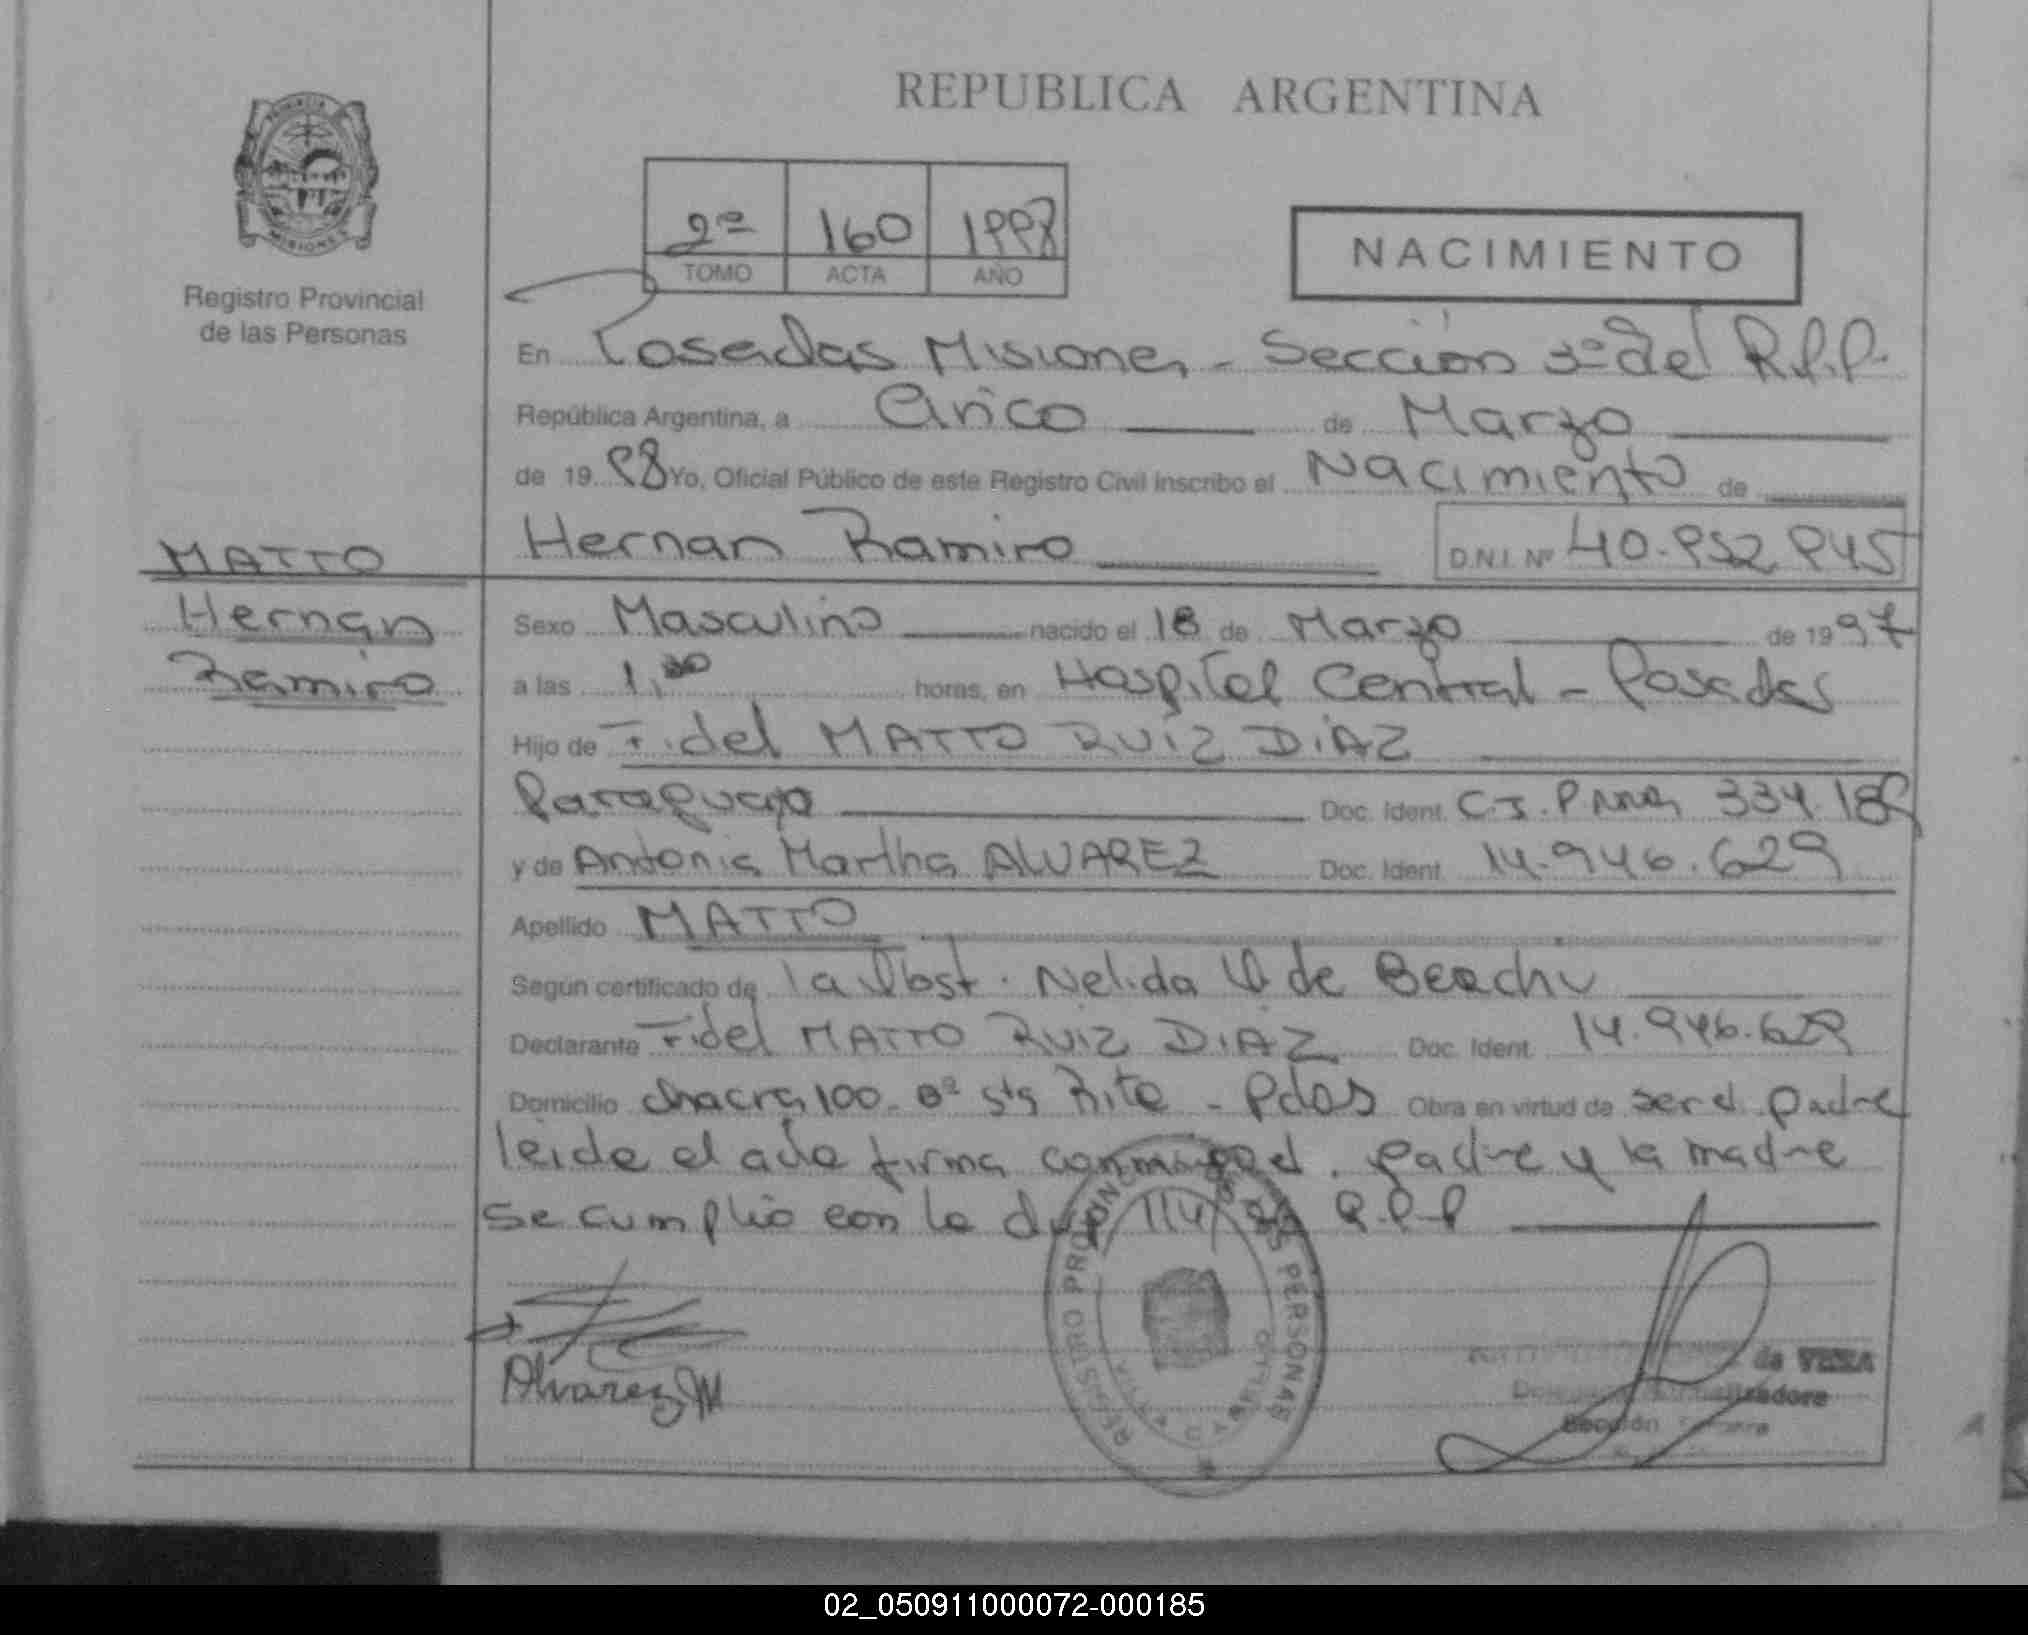 REPUBLICA ARGENTINA
MISIONES
Registro Provincial
de las Personas
2º 160 1998
TOMO ACTA AÑO
NACIMIENTO
En Posadas Misiones - Sección 3º del R.P.P.
República Argentina, a Cinco de Marzo
de 19 98 Yo, Oficial Público de este Registro Civil inscribo el Nacimiento de
Hernan Ramiro D.N.I. Nº 40.952 945
MATTO
Hernan
Ramiro
Sexo Masculino nacido el 18 de Marzo de 1997
a las 1,30 horas, en Hospital Central - Posadas
Hijo de Fidel MATTO RUIZ DIAZ
Paraguayo Doc. Ident. C.I. 334.189
y de Antonia Martha ALVAREZ Doc. Ident. 14.946.629
Apellido MATTO
Según certificado de la Obst. Nelida de
Declarante Fidel MATTO RUIZ DIAZ Doc. Ident. 14.946.629
Domicilio chacra 100 - Bº sta Rita - Pdas Obra en virtud de ser el padre
leida el acta firma conmigo el padre y la madre
se cumplió con la 114 R.P.P
Alvarez M
REGISTRO PROVINCIAL DE LAS PERSONAS
de VERA
Sección
02_050911000072-000185